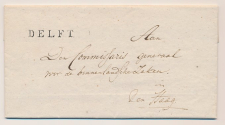 DELFT
Aan
Den Commissaris Generaal
voor de binnenlandsche zaken
Den Haag